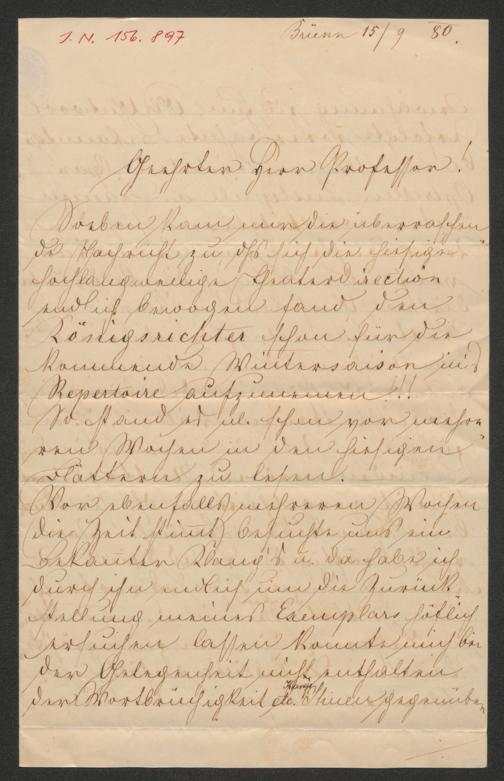 I. N. 156.897
Brünn 15/9 80.
Geehrter Herr Professor!
Soeben kam mir die überraschen
de Nachricht zu dß sich die hiesige
hochlangweilige Theaterdirection
endlich bewogen fand den
Königsrichter schon für die
kommende Wintersaison in's
Repertoire aufzunemen!!!
So stand es nl. schon vor mehre
ren Wochen in den hiesigen
Blättern zu lesen.
Vor ebenfalls mehreren Wochen
die Zeit stimt) besuchte uns ein
bekannter u. da habe ich
durch ihn endlich um die Zurük
stellung meines Exemplars höflich
ersuchen lassen konnte mich bei
der Gelegenheit nicht enthalten
der Wortbrüchigkeit Ihnen gegenüber